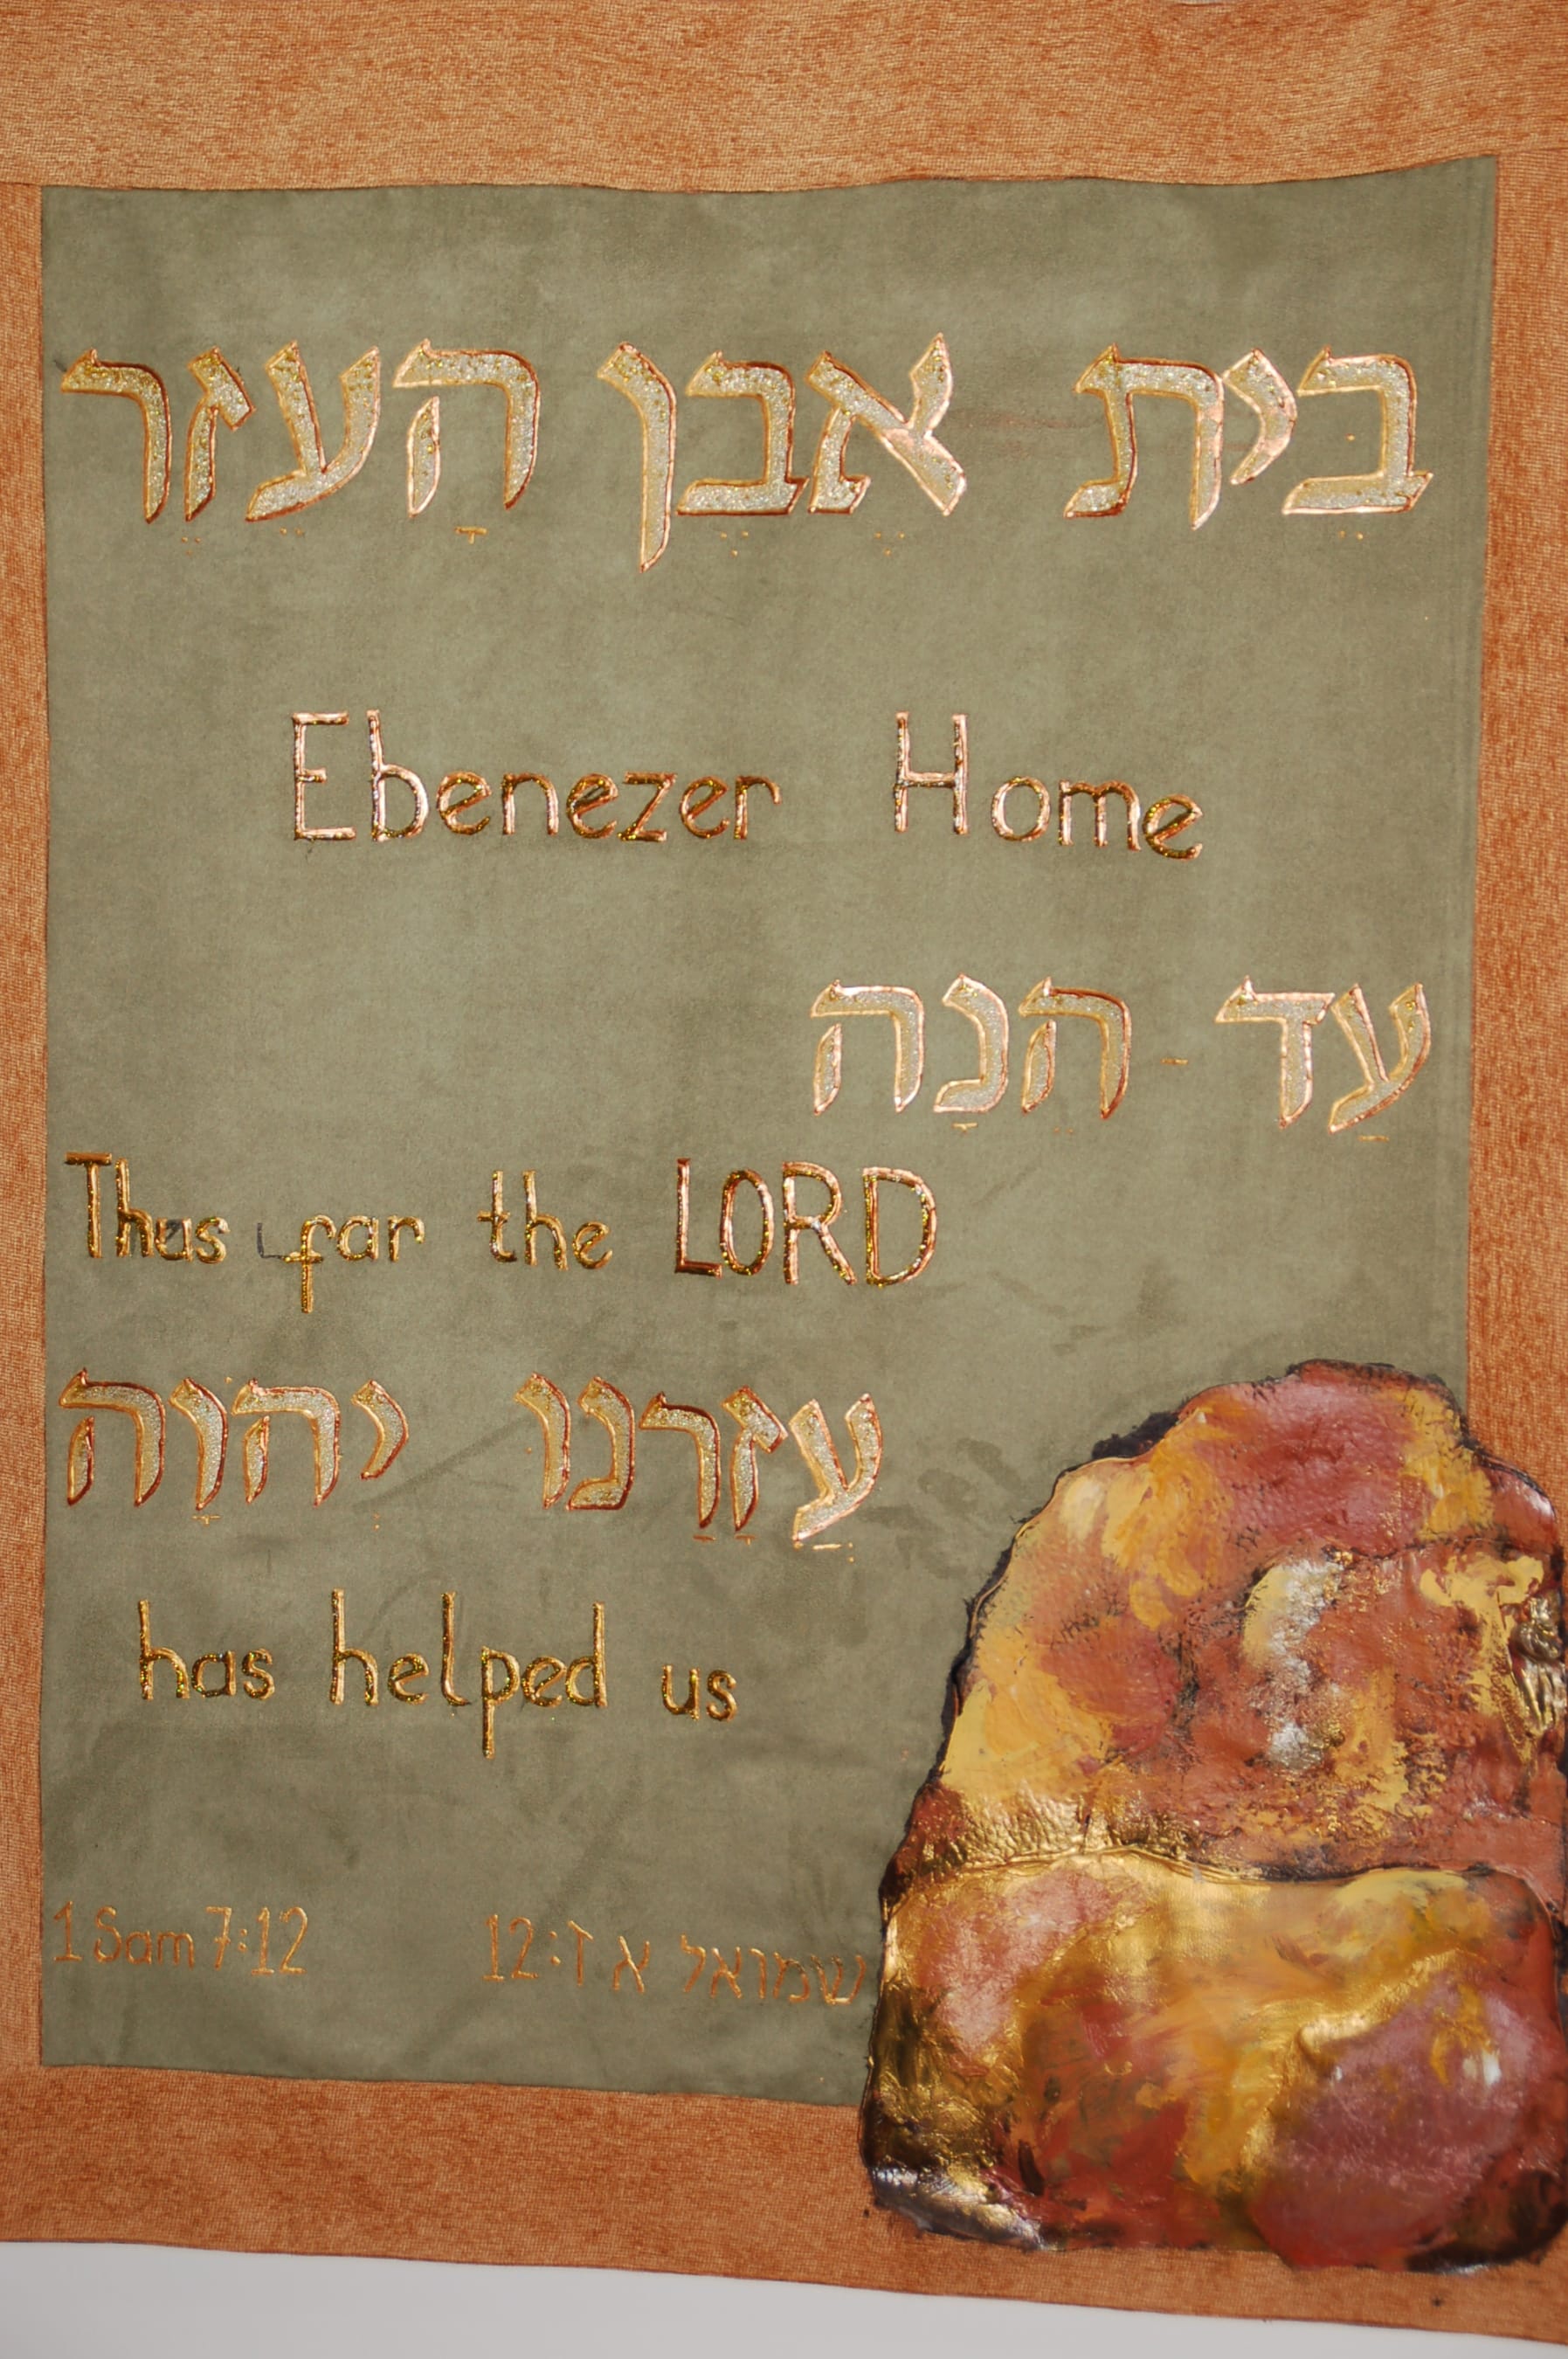 בֵּית אֶבֶן הָעֵזֶר
Ebenezer Home
עַד - הֵנָּה
Thus far the LORD
עֲזָרַנוּ יְהֹוָה
has helped us
1 Sam 7:12 שמואל א ז:12